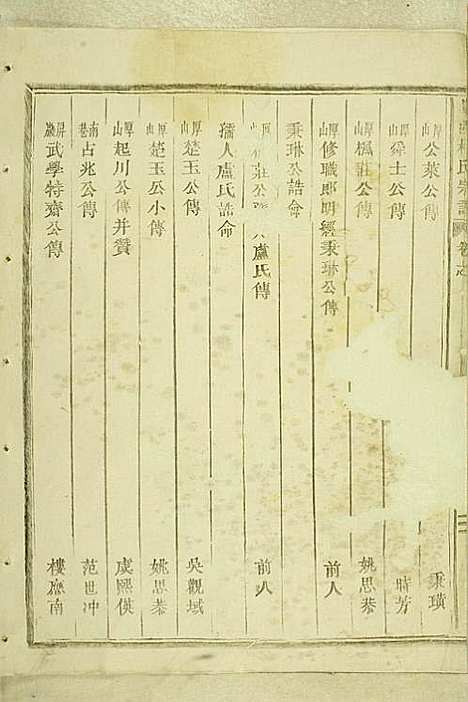 氏宗譜 卷之
厚山 公萊公傳 秉璜
厚山 舜士公傳 時芳
厚山 楓莊公傳 姚思恭
厚山 修職郎明經秉琳公傳 前人
秉琳公誥命
莊公 盧氏傳 前人
孺人盧氏誥命
厚山 楚玉公傳 吳觀域
厚山 楚玉公小傳 姚思恭
厚山 起川公傳并贊 虞熙僕
南巷 占兆公傳 范世冲
屏巖 武學特齋公傳 樓應南